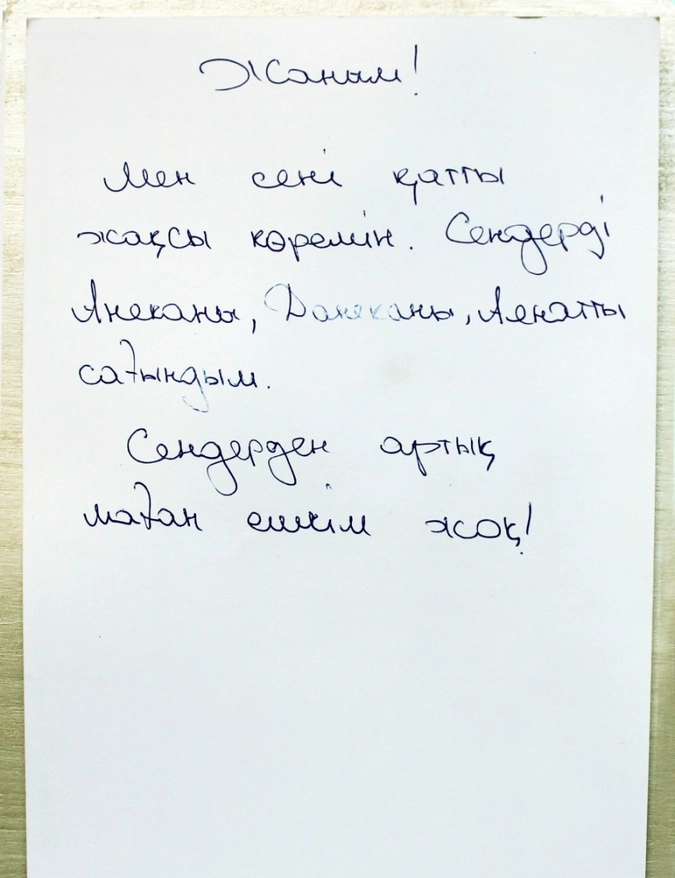 Жаным!
Мен сені қатты
жақсы көремін. Сендерді
Анеканы, Данеканы, Аенатты
сағындым.
Сендерден артық
маған ешкім жоқ!